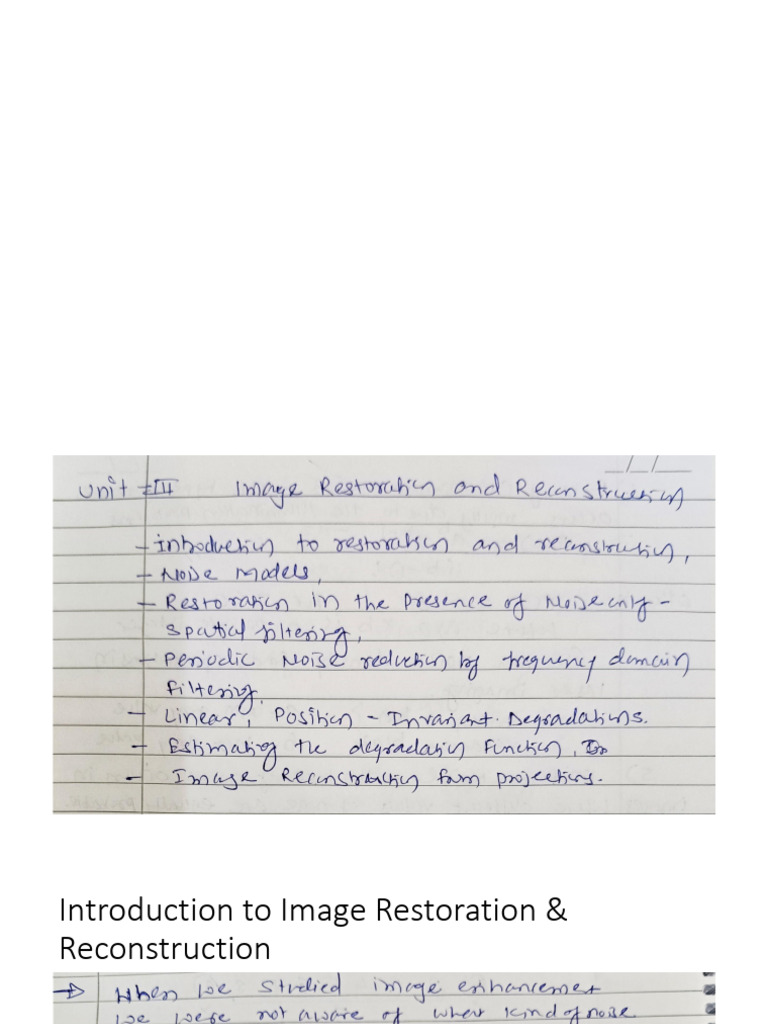 Unit - III Image Restoration and Reconstruction
- Introduction to restoration and reconstruction,
- Noise models,
- Restoration in the presence of Noise only -
spatial filtering,
- Periodic Noise reduction by frequency domain
filtering.
- Linear, Position - Invariant Degradations.
- Estimating the degradation Function,
- Image Reconstruction form projections.
Introduction to Image Restoration &
Reconstruction
→ When we studied image enhancemet
we were not aware of what kind of noise